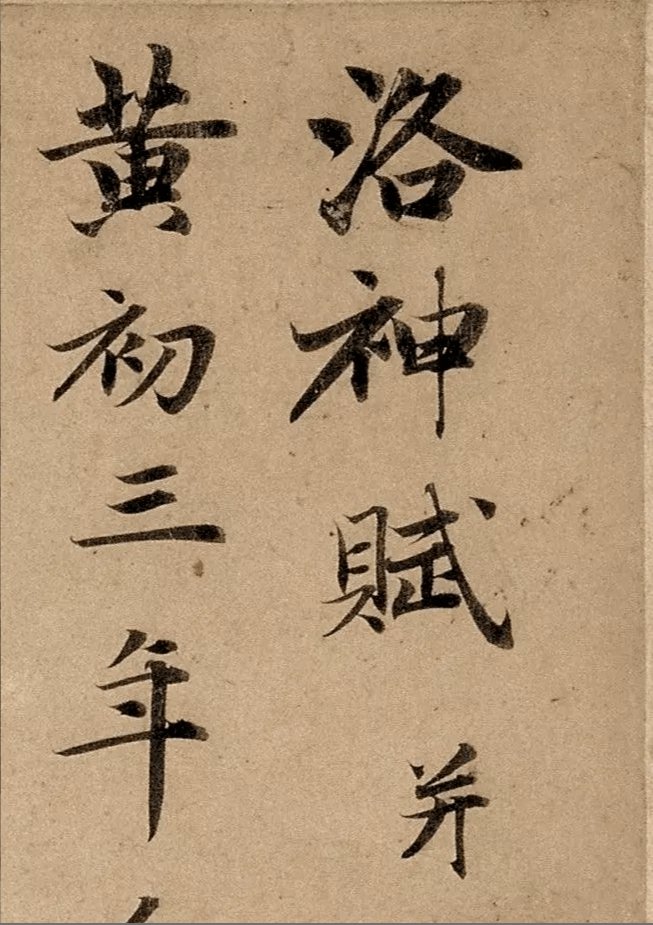 洛神賦并
黄初三年